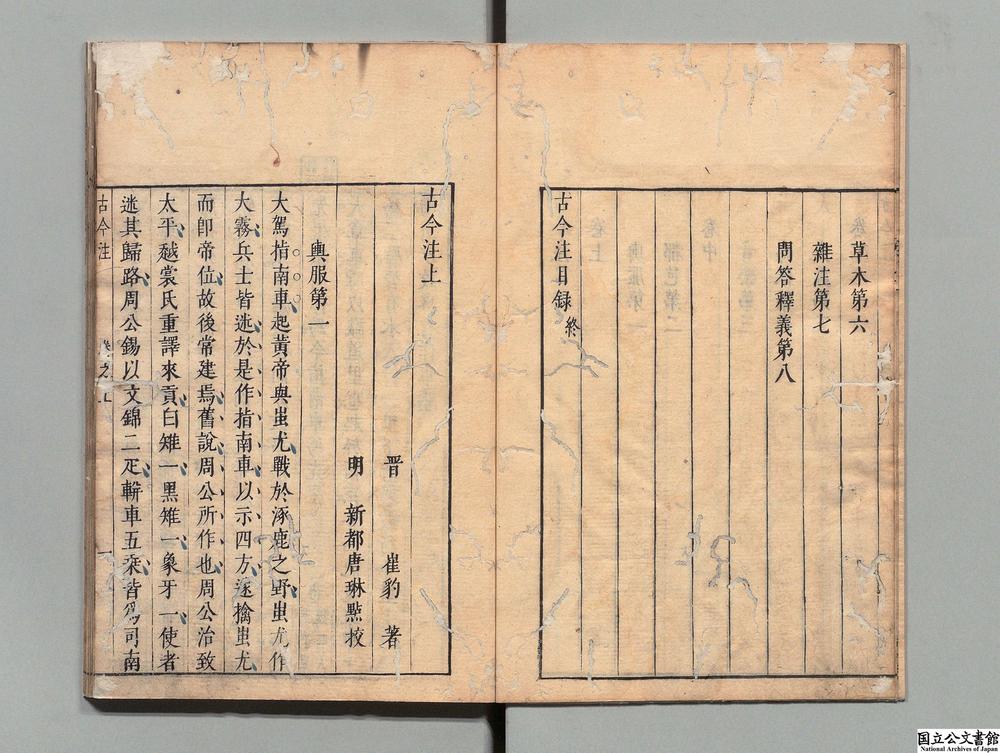 草木第六
雜注第七
問答釋義第八
古今注目録終
古今注上
晋　崔豹　著
明　新都唐琳㸃挍
輿服第一
大駕指南車起黃帝與蚩尤戰於涿鹿之野蚩尤作
大霧兵士皆迷於是作指南車以示四方遂擒蚩尤
而卽帝位故後常建焉舊說周公所作也周公治致
太平越裳氏重譯來貢白雉一黑雉一象牙一使者
迷其歸路周公錫以文錦二疋軿車五乘皆爲司南
古今注
卷之上
一
国立公文書館
National Archives of Japan